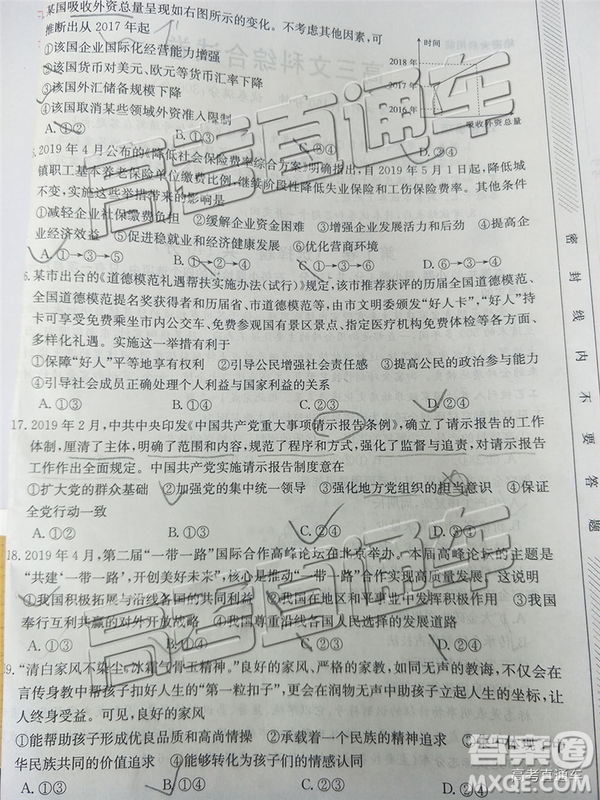 某国吸收外资总量呈现如右图所示的变化。不考虑其他因素，可
推断出从2017年起
①该国企业国际化经营能力增强
②该国货币对美元、欧元等货币汇率下降
③该国外汇储备规模下降
④该国取消某些领域外资准入限制
A.①② B.①③ D.②④
时间
2018年
2017年
2016年
吸收外资总量
2019年4月公布的《降低社会保险费率综合方案》明确指出，自2019年5月1日起，降低城
镇职工基本养老保险单位缴费比例，继续阶段性降低失业保险和工伤保险费率。其他条件
不变，实施这些举措带来的影响是
①减轻企业社保缴费负担 ②缓解企业资金困难 ③增强企业发展活力和后劲 ④提高企
业经济效益 ⑤促进稳就业和经济健康发展 ⑥优化营商环境
A.①→③→⑤ B.①→③→⑥ C.②→④→⑤ D.②→④→⑥
6.某市出台的《道德模范礼遇帮扶实施办法(试行)》规定，该市推荐评选的历届全省、
全国道德模范提名奖获得者和历届省、市道德模范等，由市文明委颁发“好人卡”，“好人”持
卡可享受免费乘坐市内公交车、免费参观国有景区景点、指定医疗机构免费体检等内容丰富、
多样化礼遇。实施这一举措有利于
①保障“好人”平等地享有权利 ②引导公民增强社会责任感 ③提高公民的政治参与能力
④引导社会成员正确处理个人利益与国家利益的关系
A.①③ B.①④ C.②③ D.②④
17.2019年2月，中共中央印发《中国共产党重大事项请示报告条例》，确立了请示报告的工作
体制，厘清了主体，明确了范围和内容，规范了程序和方式，强化了监督与追责，对请示报告
工作作出全面规定。中国共产党实施请示报告制度意在
①扩大党的群众基础 ②加强党的集中统一领导 ③强化地方党组织的担当意识 ④保证
全党行动一致
A.①② B.①③ C.②④ D.③④
18.2019年4月，第二届“一带一路”国际合作高峰论坛在北京举办。本届高峰论坛的主题是
“共建‘一带一路’，开创美好未来”，核心是推动“一带一路”合作实现高质量发展。这说明
①我国积极拓展与沿线各国的共同利益 ②我国在地区和平事业中发挥积极作用 ③我国
奉行互利共赢的对外开放战略 ④我国尊重沿线各国人民选择的发展道路
A.①③ B.①④ C.②③ D.②④
19.“清白家风不染尘，冰霜气骨玉精神。”良好的家风、严格的家教，如同无声的教诲，不仅会在
言传身教中帮孩子扣好人生的“第一粒扣子”，更会在润物无声中助孩子立起人生的坐标，让
人终身受益。可见，良好的家风
①能帮助孩子形成优良品质和高尚情操 ②承载着一个民族的精神追求
华民族共同的价值追求 ④能够转化为孩子们的情感认同
A.①③ B.①④ C.②③ D.②④
密封线内不要答题
高考直通车
高考直通车
答案圈
MXQE.COM
高考直通车